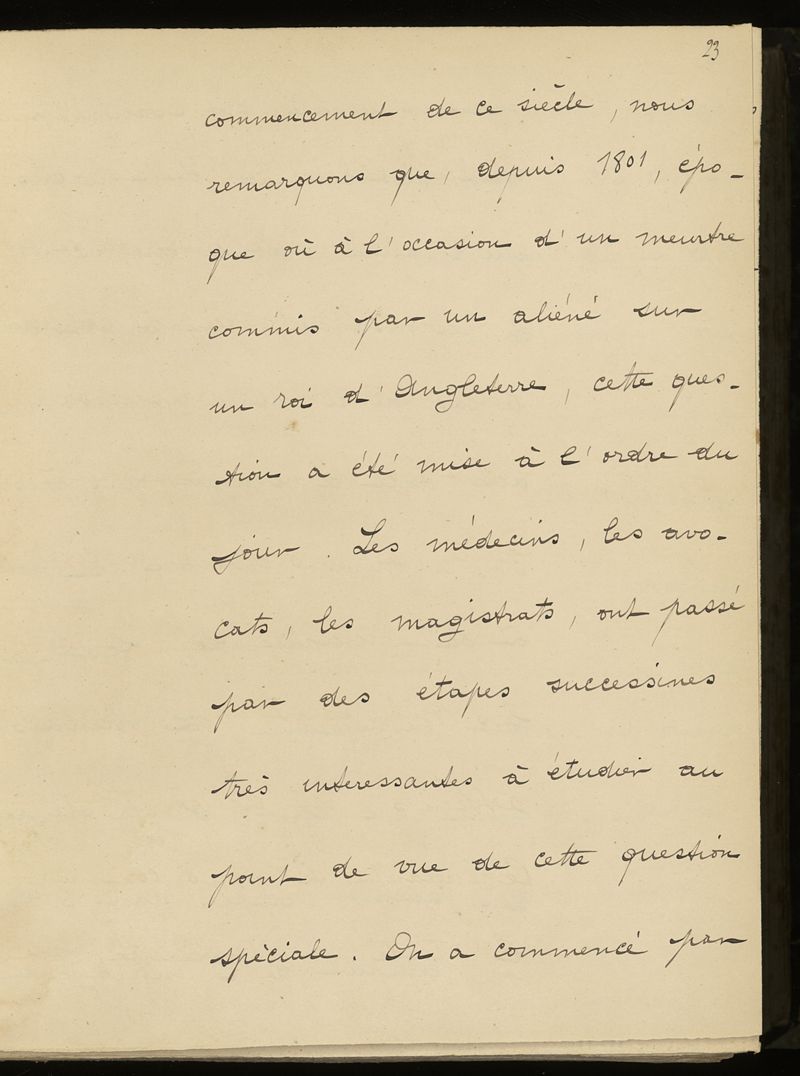 23
commencement de ce siècle, nous
remarquons que, depuis 1801, épo-
que où à l'occasion d'un meurtre
commis par un aliéné sur
un roi d'Angleterre, cette ques-
tion a été mise à l'ordre du
jour. Les médecins, les avo-
cats, les magistrats, ont passé
par des étapes successives
très interessantes à étudier au
point de vue de cette question
spèciale. On a commencé par